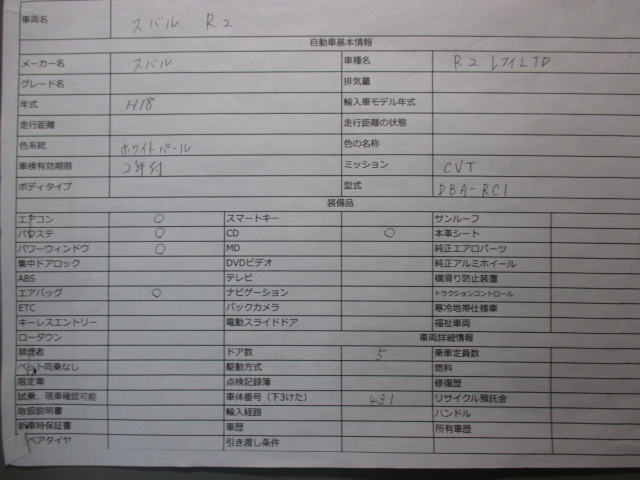 車両名 スバル R2
自動車基本情報
メーカー名 スバル 車種名 R2 レフィLTD
グレード名 排気量
年式 H18 輸入車モデル年式
走行距離 走行距離の状態
色系統 ホワイトパール 色の名称
車検有効期限 2年付 ミッション CVT
ボディタイプ 型式 DBA-RC1
装備品
エアコン ○ スマートキー サンルーフ
パワステ ○ CD ○ 本革シート
パワーウィンドウ ○ MD 純正エアロパーツ
集中ドアロック DVDビデオ 純正アルミホイール
ABS テレビ 横滑り防止装置
エアバッグ ○ ナビゲーション トラクションコントロール
ETC バックカメラ 寒冷地帯仕様車
キーレスエントリー 電動スライドドア 福祉車両
ローダウン 車両詳細情報
禁煙者 ドア数 5 乗車定員数
ペット同乗なし 駆動方式 燃料
限定車 点検記録簿 修復歴
試乗、現車確認可能 車体番号（下3けた） 431 リサイクル預託金
取扱説明書 輸入経路 ハンドル
新車時保証書 車歴 所有車歴
スペアタイヤ 引き渡し条件